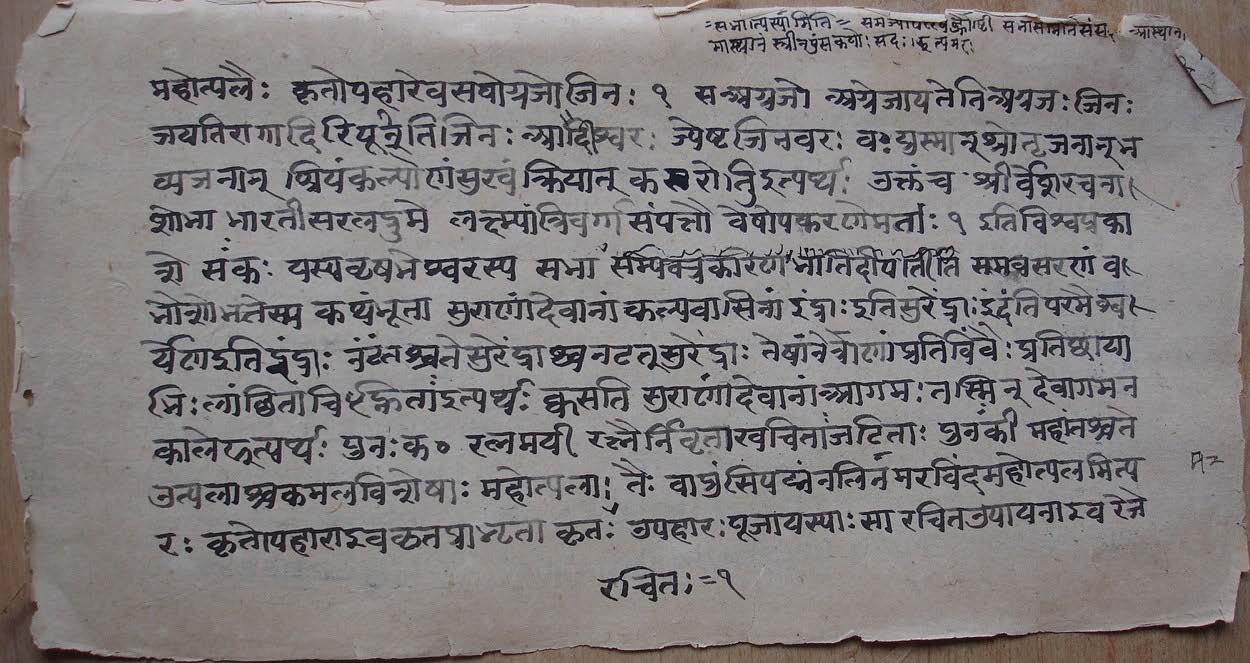 =सभात्पर्स्यामिति= समज्यापरिषद्गोष्ठी सभासमितिसंसदः आस्थानी
मास्थानं स्त्रीनपुंसकयोः सदः। इत्यमरः
महोत्पलैः कृतोपहारेवसवोग्रजोजिनः १ सअग्रजो अग्रेजायतेतिअग्रजः जिनः
जयतिरागादिरिपूनितिजिनः आदीश्वरः ज्येष्टजिनवरः वःयुस्मान्श्रोतृजनान्भ
व्यजनान् श्रियंकल्याणंसुखं क्रियात् करोतुइत्यर्थः उक्तंच श्रीर्वेशरचना
शोभा भारतीसरलद्रुमे लक्ष्म्यांत्रिवर्गसंपत्तौ वेषोपकरणेमताः १ इतिविश्वप्रका
शे संकः यस्यवृषभेश्वरस्य सभा भातिदीप्यति समवसरणं व
भौशोभतेस्म कथंभूता सुराणांदेवानां कल्पवासिनां इंद्राः इतिसुरेंद्राः इंदंतिपरमैश्व
र्येणइतिइंद्राः नटंतश्चतेसुरेंद्राश्चनटत्सुरेंद्राः तेषांनेत्राणांप्रतिबिंबैः प्रतिछाया
भिः लांछितांचिह्नितांइत्यर्थः क्वसति सुराणांदेवानांआगमः तस्मिन् देवागमन
कालेइत्यर्थः पुनःक॰ रत्नमयी रत्नैर्निवृताखचितांजटिताः पुनःकी महांतश्चते
उत्पलाश्चकमलविशेषाः महोत्पलाः तैः वापुंसिपद्मंनलिनमरविंदमहोत्पलमित्यम
रः कृतोपहाराइवकृतप्राभृता कृतः उपहारः पूजायस्याः सा रचितउपायनाइव रेजे
रचितः=१